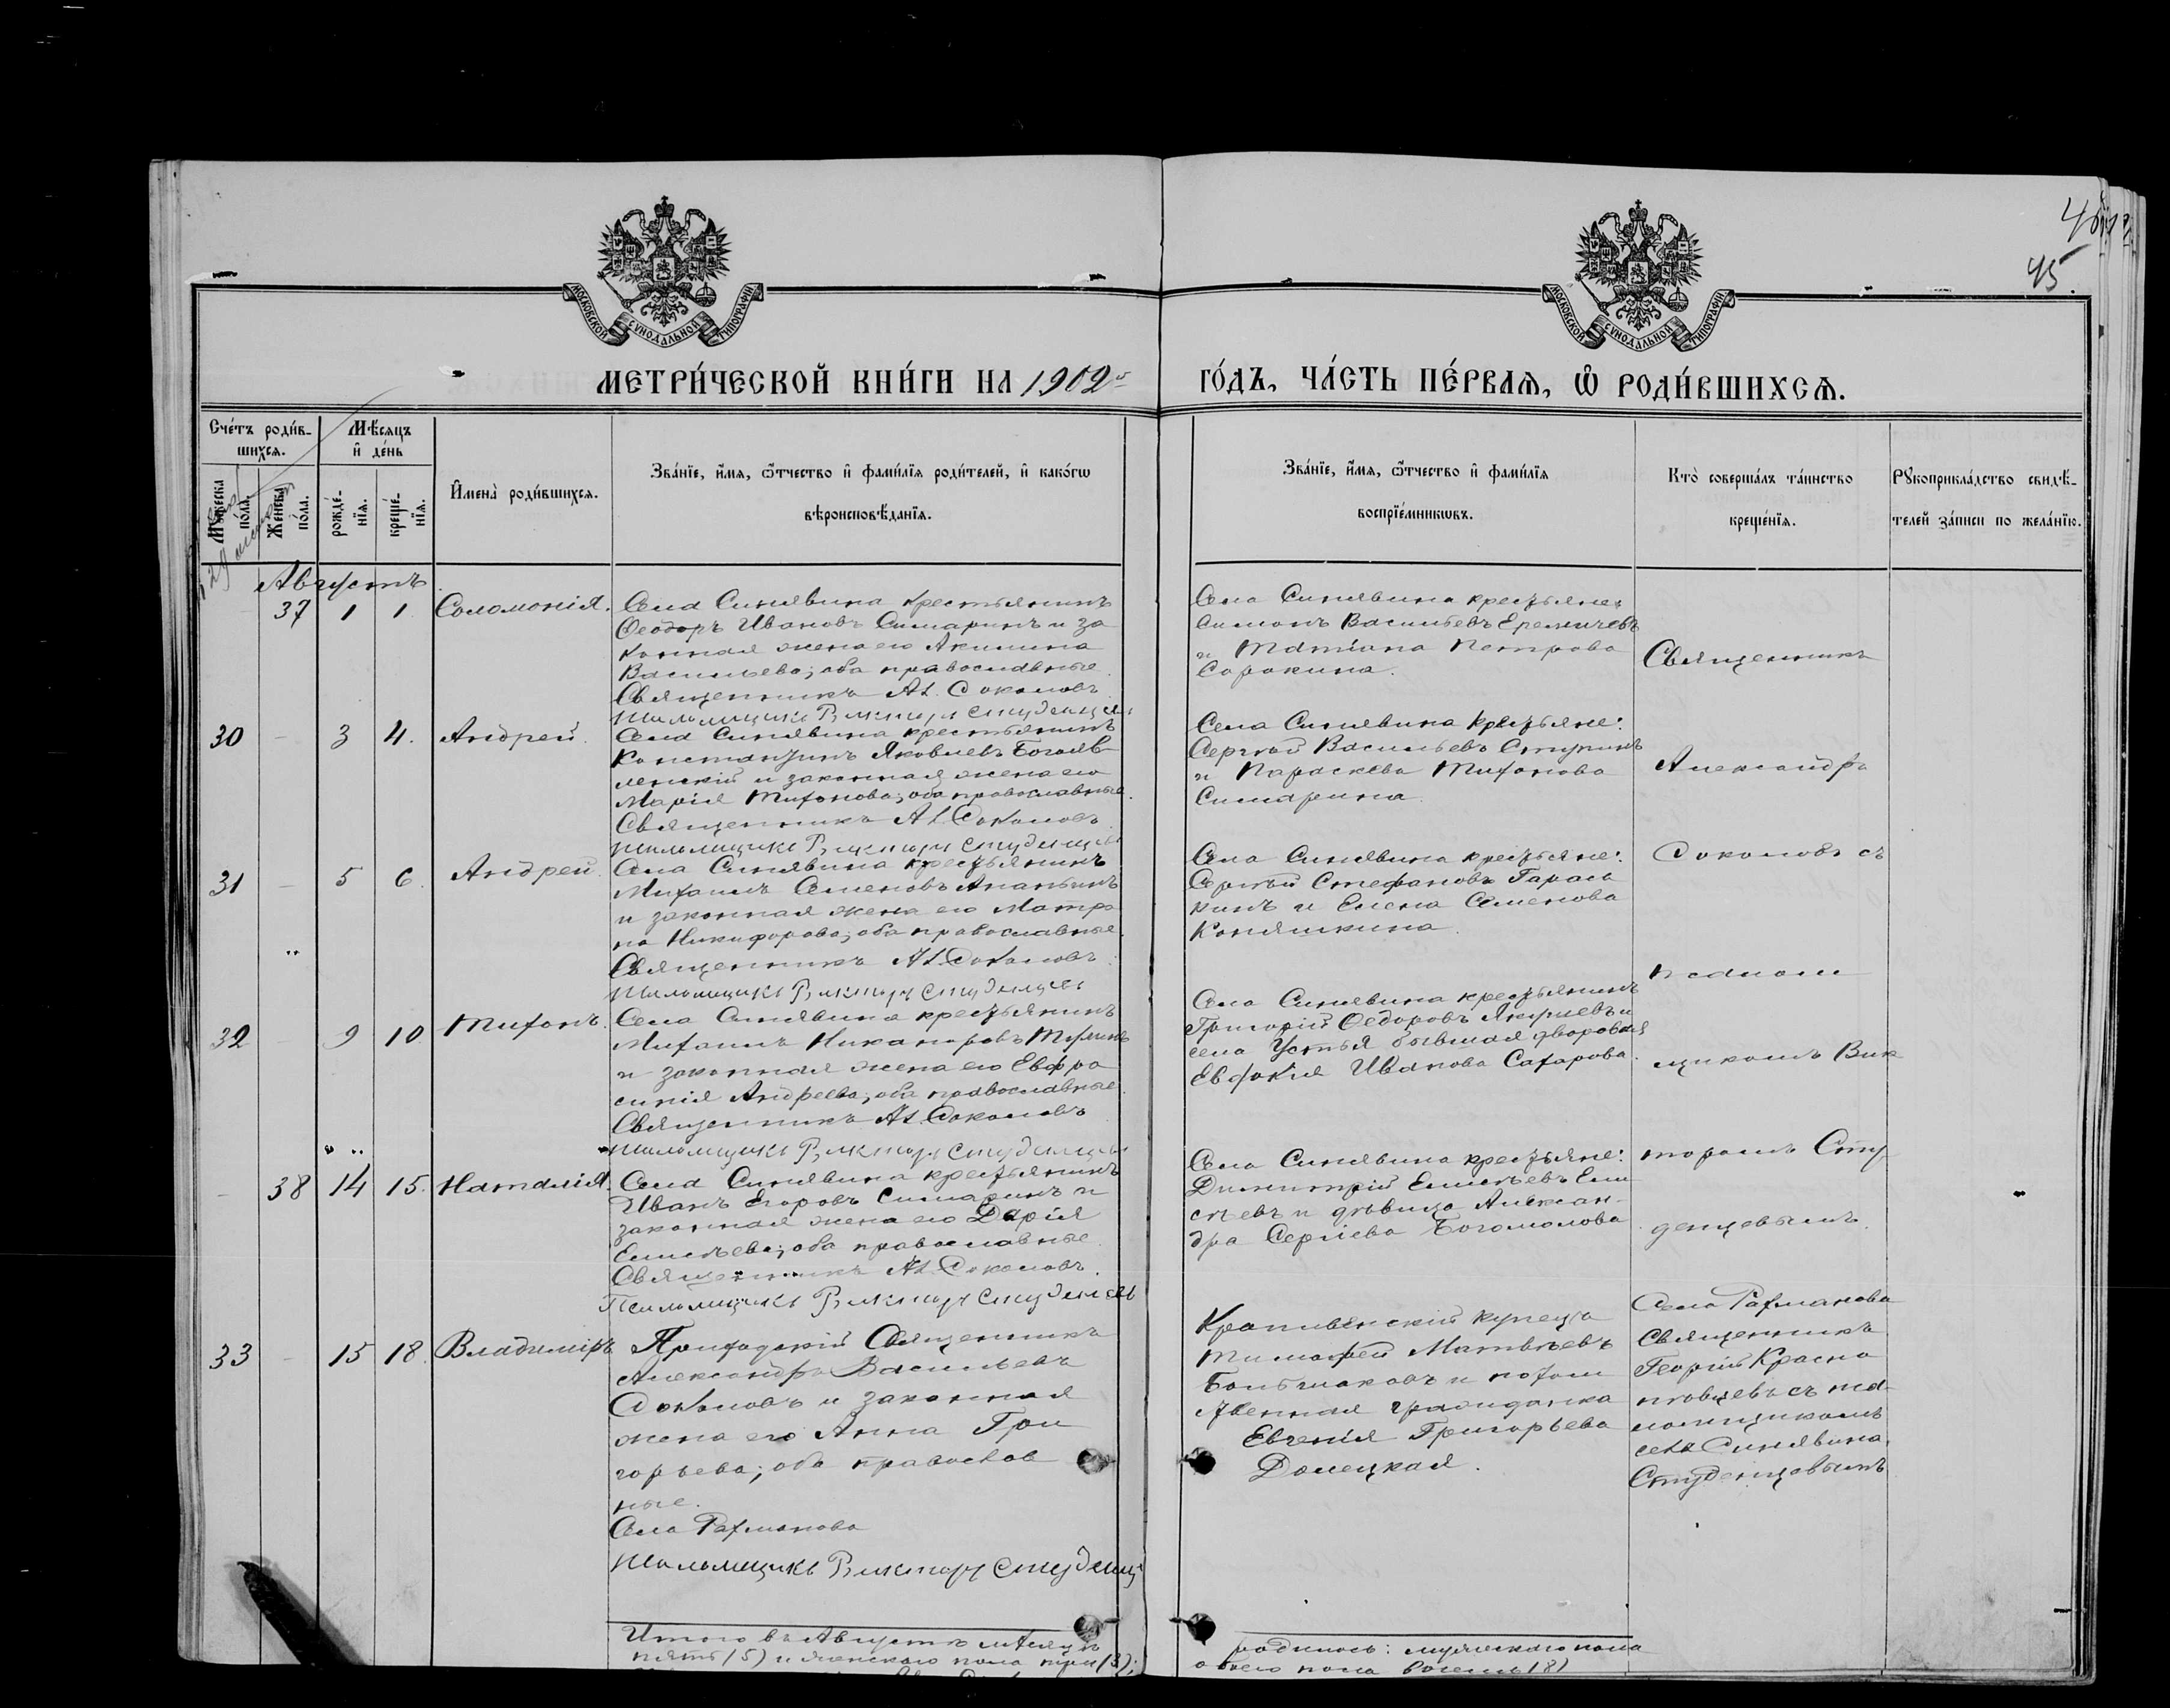 45
МОСКОВСКОЙ СУНОДАЛЬНОЙ ТИПОГРАФIИ
МОСКОВСКОЙ СУНОДАЛЬНОЙ ТИПОГРАФIИ
МЕТРИ́ЧЕСКОЙ КНИ́ГИ НА 1902
ГО́ДЪ, ЧА́СТЬ ПЕ́РВАѦ, Ѡ РОДИ́ВШИХСѦ.
Сче́тъ роди́в-
шихсѧ.
Мѣ́сѧцъ
и҆ де́нь
Мꙋжеска по́ла.
Же́нска по́ла.
рожде́-
нїѧ.
креще́-
нїѧ.
И҆мена̀ роди́вшихсѧ.
Зва́нїе, и҆́мѧ, ѻ҆́тчество и҆ фами́лїѧ роди́телей, и҆ како́гѡ
вѣроисповѣ́данїѧ.
Зва́нїе, и҆́мѧ, ѻ҆́тчество и҆ фами́лїѧ
воспрїе́мникѡвъ.
Кто̀ соверша́лъ та́инство
креще́нїѧ.
Рꙋкоприкла́дство свидѣ́-
телей за́писи по жела́нїю.
Августъ
37 1 1 Соломонія.
Села Синявина крестьянинъ
Ѳеодоръ Ивановъ Симаринъ и за
конная жена его Акилина
Васильева; оба православные
Священникъ Ал. Соколовъ
Псаломщикъ Викторъ Студенцевъ
Села Синявина крестьяне:
Симонъ Васильевъ Еремичевъ
и Татіана Петрова
Сорокина.
Священникъ
30 3 4. Андрей.
Села Синявина крестьянинъ
Константинъ Яковлевъ Богояв
ленскій и законная жена его
Марія Тихонова; оба православные.
Священникъ Ал. Соколовъ
Псаломщикъ Викторъ Студенцевъ
Села Синявина крестьяне:
Сергѣй Васильевъ Ступинъ
и Параскева Тихонова
Симарина
Александръ
31 5 6. Андрей
Села Синявина крестьянинъ
Михаилъ Семеновъ Ананьинъ
и законная жена его Матро
на Никифорова; оба православные.
Священникъ Ал. Соколовъ
Псаломщикъ Викторъ Студенцевъ
Села Синявина крестьяне:
Сергѣй Стефановъ
и Елена Семенова
Коняшкина.
Соколовъ съ
псалом
32 9 10 Тихонъ.
Села Синявина крестьянинъ
Михаилъ Никаноровъ
и законная жена его Евфро
синія Андреева; оба православные
Священникъ Ал. Соколовъ
Псаломщикъ Викторъ Студенцевъ
Села Синявина крестьянинъ
Григорій Ѳедоровъ
села Устья бывшая дворовая
Евдокія Иванова Сахарова.
щикомъ Вик
38 14 15. Наталія.
Села Синявина крестьянинъ
Иванъ Егоровъ Симаринъ и
законная жена его Дарія
Елисѣева; оба православные.
Священникъ Ал. Соколовъ.
Псаломщикъ Викторъ Студенцевъ
Села Синявина крестьяне:
Димитрій Елисѣевъ Ели
сѣевъ и дѣвица Алексан-
дра Сергіева Богомолова
торомъ Сту
денцевымъ.
33 15 18. Владиміръ
Приходскій Священникъ
Александръ Васильевъ
Соколовъ и законная
жена его Анна Гри
горьева; оба православ
ные.
Села Рахманова
Псаломщикъ Викторъ Студенц
Крапивенскій купецъ
Тимофей Матвѣевъ
Большаковъ и потом
ственная гражданка
Евгенія Григорьева
Донецкая.
Села Рахманова
Священникъ
Георгій Красно
пѣвцевъ съ пса-
ломщикомъ
села Синявина.
Студенцовымъ
Итого въ Августѣ мѣсяцѣ
родилось: мужескаго пола
пять (5) и женскаго пола три (3);
обоего пола восемь (8)